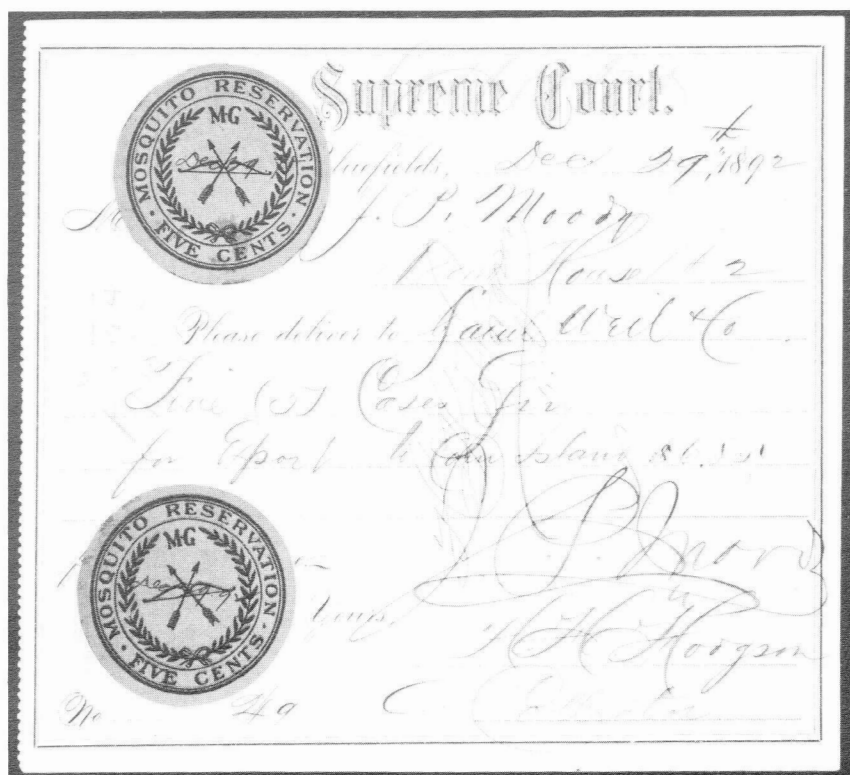 Supreme Court.
MOSQUITO RESERVATION
MG
Dec 29
FIVE CENTS
Bluefields, Dec 29th, 1892
J. P. Moody
House # 2
Please deliver to Weil & Co
Five (5) Cases Gin
for Export to Corn Island
MOSQUITO RESERVATION
MG
FIVE CENTS
J. P. Moody
Yours
H H Hodgson
No 49